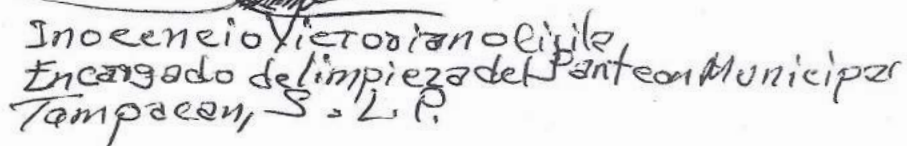 Inocencio Victoriano Cirilo
Encargado de limpieza del Panteon Municipal
Tampacan, S.L.P.